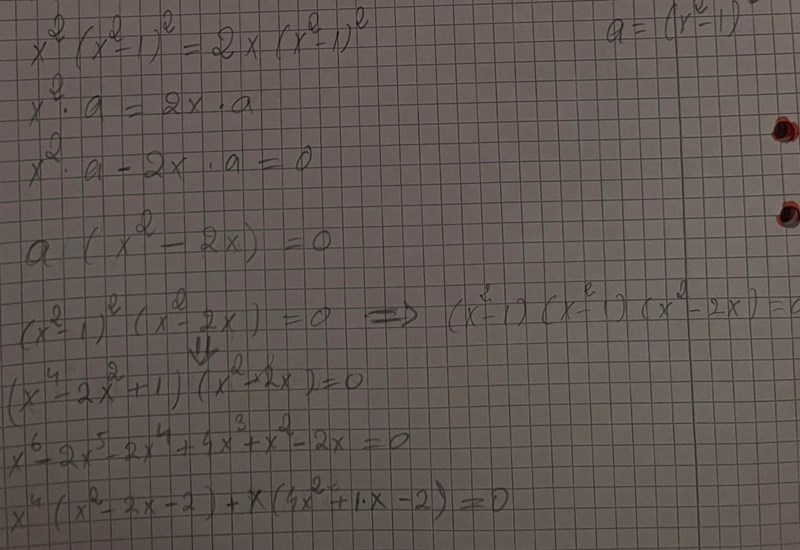 x² (x²-1)² = 2x (x²-1)²
a = (x²-1)²
x² · a = 2x · a
x² · a - 2x · a = 0
a (x² - 2x) = 0
(x²-1)² (x² - 2x) = 0 ⇒ (x²-1) (x²-1) (x² - 2x) = 0
⇓
(x⁴ - 2x² + 1) (x² - 2x) = 0
x⁶ - 2x⁵ - 2x⁴ + 4x³ + x² - 2x = 0
x⁴ (x² - 2x - 2) + x (4x² + 1·x - 2) = 0